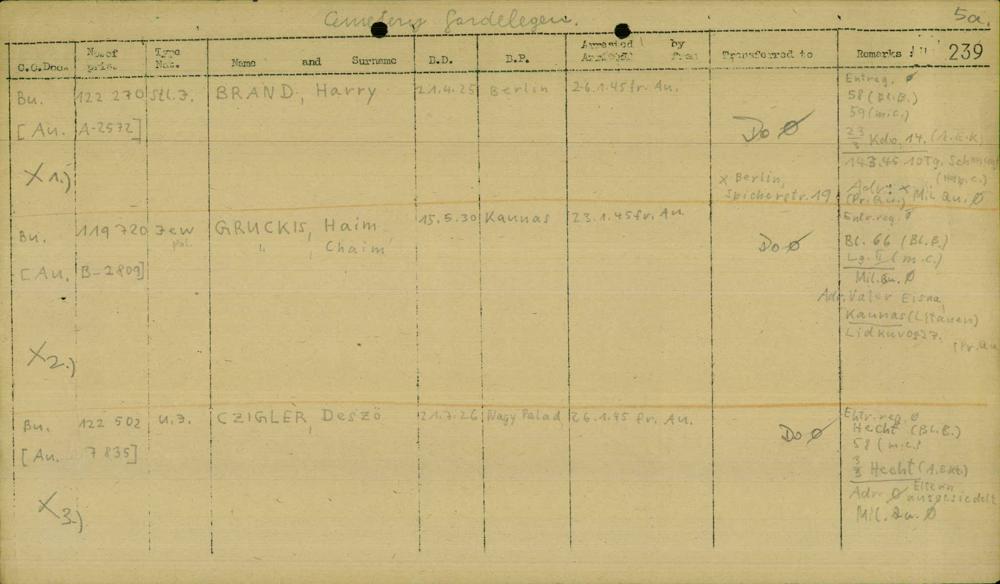 Cemetery Gardelegen.
5a.
C.C.Doc. No. of pris. Type Nat. Name and Surname D.D. D.P. Arrested by Transferred to Remarks : 239
Bu. 122 270 BRAND, Harry 21.4.25 Berlin 26.1.45 fr. Au. Entr.reg. Ø
58 (Bl.B.)
59 (m.c.)
[Au. A-2572] Do Ø
23/3 Kdo. 14. (A.E.K)
14.3.45 10 Tg. Schonung
(Hosp.c.)
X 1.) x Berlin, Adr.: x
Spicherstr. 19 (Pr.Bu.) Mil. Bu. Ø
Bu. 119 720 Jew GRUCKIS, Haim 15.5.30 Kaunas 23.1.45 fr. Au. Entr.reg. Ø
pol. " Chaim Do Ø Bl. 66 (Bl.B.)
Lg. II (m.c.)
[Au. B-2809] Mil. Bu. Ø
Adr. Vater Eisna,
Kaunas (Litauen)
X 2.)
Bu. 122 502 U.J. CZIGLER, Deszö 21.7.26 Nagy Palad 26.1.45 fr. Au. Entr.reg. Ø
Do Ø Hecht (Bl.B.)
58 (m.c.)
[Au. 7835] 3/3 Hecht (A.EK.)
X 3.) Adr. Ø Eltern ausgesiedelt
Mil. Bu. Ø